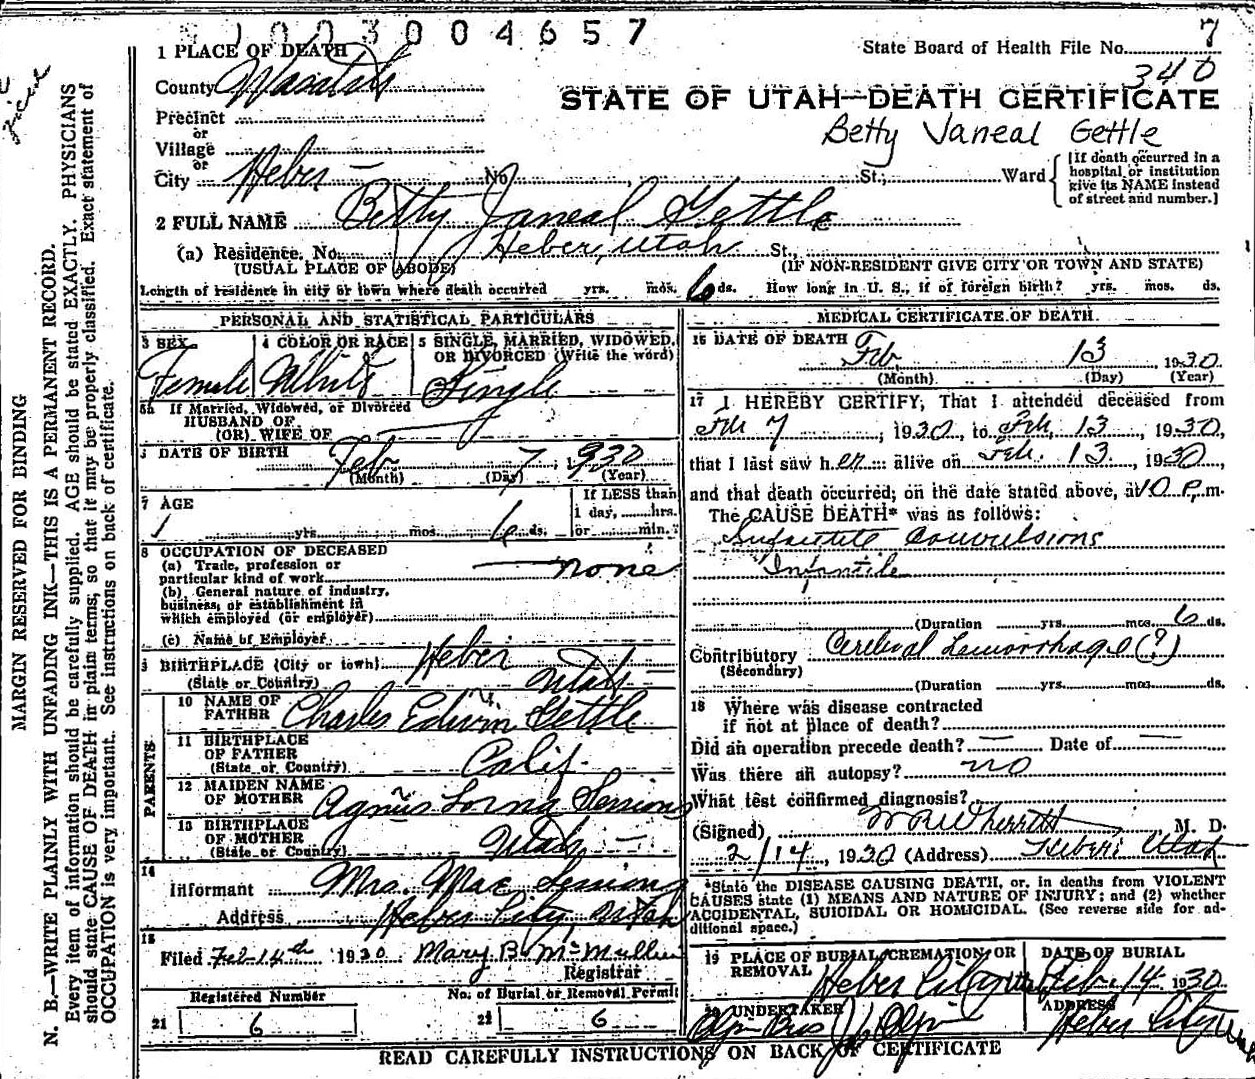 003004657
7
State Board of Health File No.
340
1 PLACE OF DEATH
County Wasatch
STATE OF UTAH—DEATH CERTIFICATE
Precinct
or
Betty Janeal Gettle
Village
or
City Heber No. St., Ward
[If death occurred in a
hospital or institution
give its NAME instead
of street and number.]
2 FULL NAME Betty Janeal Gettle
(a) Residence. No. Heber, Utah St.,
(USUAL PLACE OF ABODE) (IF NON-RESIDENT GIVE CITY OR TOWN AND STATE)
Length of residence in city or town where death occurred yrs. mos. 6 ds. How long in U. S., if of foreign birth? yrs. mos. ds.
PERSONAL AND STATISTICAL PARTICULARS
3 SEX 4 COLOR OR RACE 5 SINGLE, MARRIED, WIDOWED,
OR DIVORCED (Write the word)
Female White Single
5a If Married, Widowed, or Divorced
HUSBAND OF
(OR) WIFE OF
DATE OF BIRTH Feb 7, 1930
(Month) (Day) (Year)
7 AGE
yrs. mos. 6 ds.
If LESS than
1 day, hrs.
or min.?
8 OCCUPATION OF DECEASED
(a) Trade, profession or
particular kind of work none
(b) General nature of industry,
business, or establishment in
which employed (or employer)
(c) Name of Employer
BIRTHPLACE (City or town) Heber
(State or Country) Utah
PARENTS
10 NAME OF
FATHER Charles Edwin Gettle
11 BIRTHPLACE
OF FATHER
(State or Country) Calif.
12 MAIDEN NAME
OF MOTHER Agnus Lorna Sessions
13 BIRTHPLACE
OF MOTHER
(State or Country) Utah
14
Informant Mrs. Mae Sessions
Address Heber City, Utah
15
Filed Feb 14th 1930 Mary B McMullin
Registrar
Registered Number No. of Burial or Removal Permit
21 6 22 6
MEDICAL CERTIFICATE OF DEATH
16 DATE OF DEATH Feb. 13 1930
(Month) (Day) (Year)
17 I HEREBY CERTIFY, That I attended deceased from
Feb 7, 1930, to Feb. 13, 1930,
that I last saw her alive on Feb. 13, 1930,
and that death occurred, on the date stated above, at 10 P.m.
The CAUSE DEATH* was as follows:
Convulsions
Infantile
(Duration yrs. mos. 6 ds.
Contributory Cerebral Hemorrhage (?)
(Secondary)
(Duration yrs. mos. ds.
18 Where was disease contracted
if not at place of death?
Did an operation precede death? — Date of —
Was there an autopsy? no
What test confirmed diagnosis?
(Signed) W R Wherritt M. D.
2/14, 1930 (Address) Heber, Utah
*State the DISEASE CAUSING DEATH, or, in deaths from VIOLENT
CAUSES state (1) MEANS AND NATURE OF INJURY; and (2) whether
ACCIDENTAL, SUICIDAL OR HOMICIDAL. (See reverse side for ad-
ditional space.)
19 PLACE OF BURIAL, CREMATION OR
REMOVAL Heber City Utah
DATE OF BURIAL
Feb. 14 1930
20 UNDERTAKER
ADDRESS
Heber City Utah
READ CAREFULLY INSTRUCTIONS ON BACK OF CERTIFICATE
MARGIN RESERVED FOR BINDING
N. B.—WRITE PLAINLY WITH UNFADING INK—THIS IS A PERMANENT RECORD.
Every item of information should be carefully supplied. AGE should be stated EXACTLY. PHYSICIANS
should state CAUSE OF DEATH in plain terms, so that it may be properly classified. Exact statement of
OCCUPATION is very important. See instructions on back of certificate.